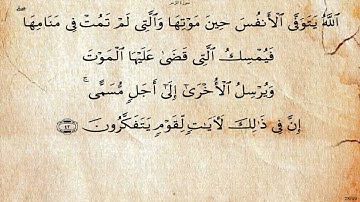 سورة الزمر
اللَّهُ يَتَوَفَّى الْأَنفُسَ حِينَ مَوْتِهَا وَالَّتِي لَمْ تَمُتْ فِي مَنَامِهَا
فَيُمْسِكُ الَّتِي قَضَىٰ عَلَيْهَا الْمَوْتَ
وَيُرْسِلُ الْأُخْرَىٰ إِلَىٰ أَجَلٍ مُّسَمًّى ۚ
إِنَّ فِي ذَٰلِكَ لَآيَاتٍ لِّقَوْمٍ يَتَفَكَّرُونَ ٤٢